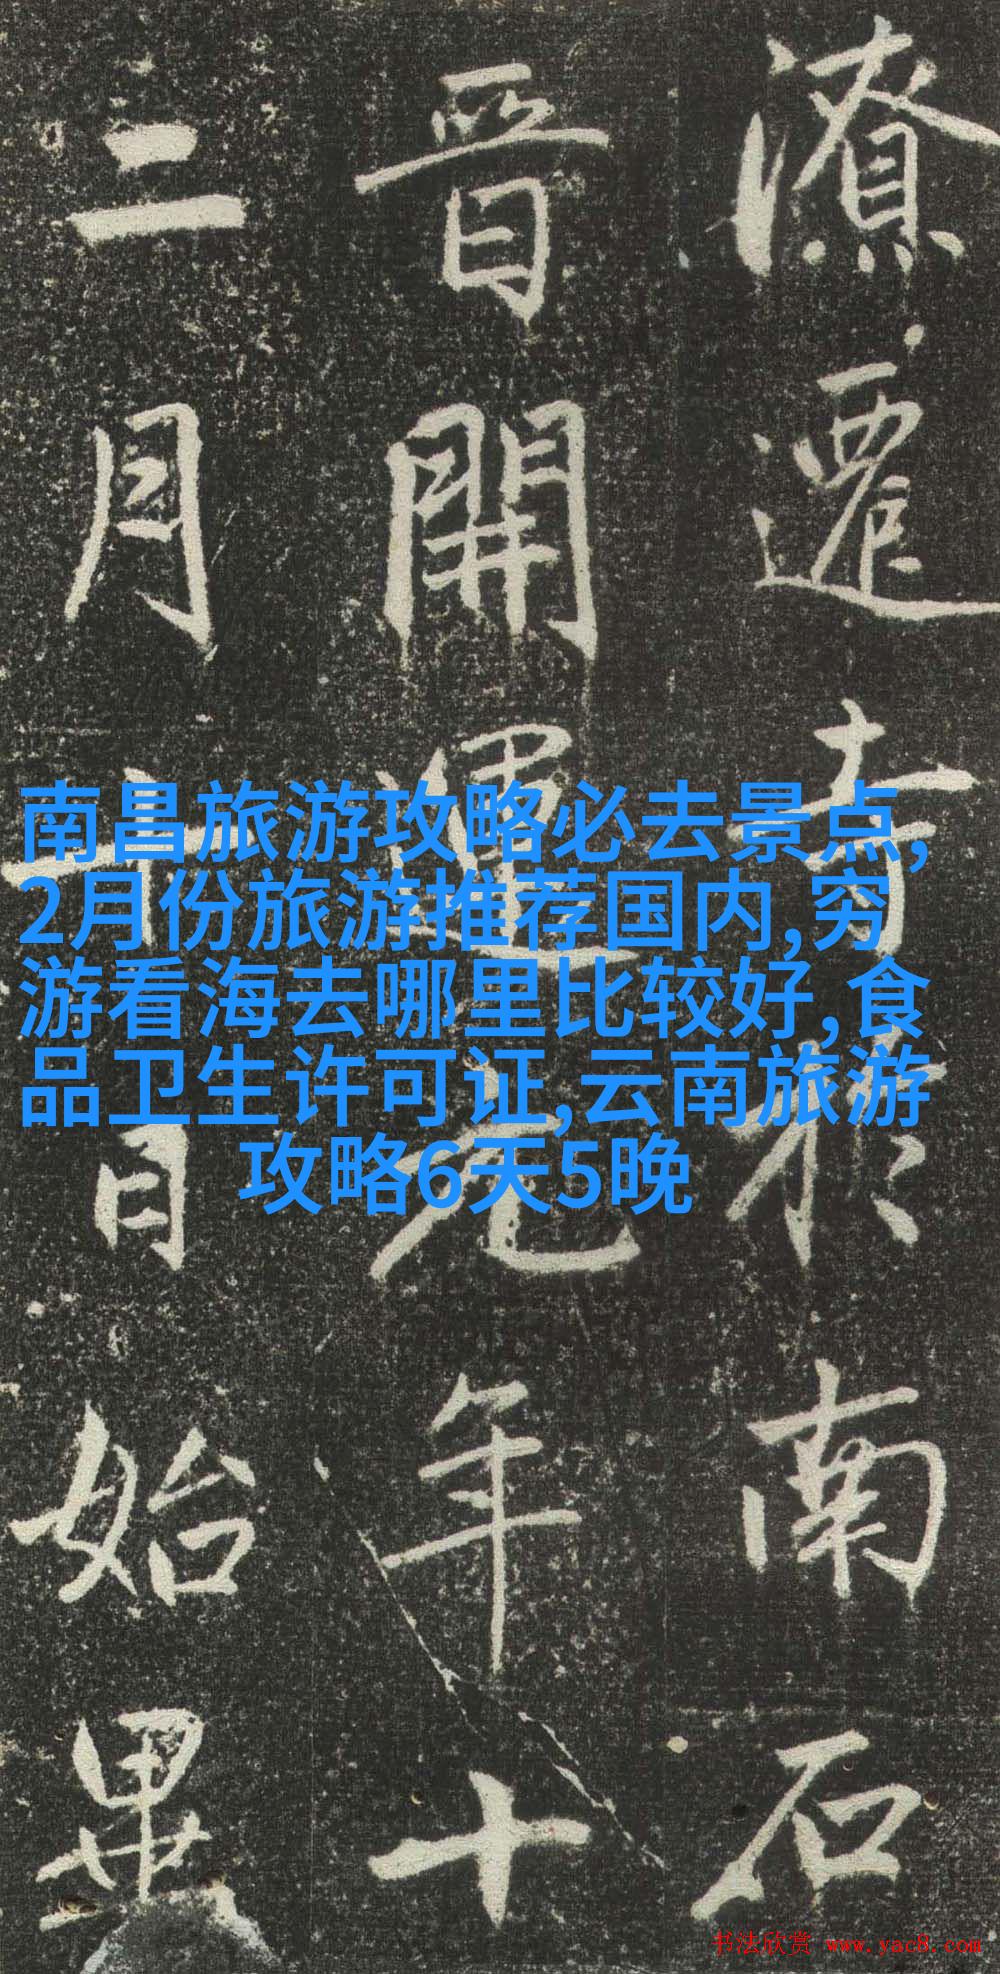 潦遷寺於南石
晉開運元年十
二月十一日始畢
南昌旅游攻略必去景点,
2月份旅游推荐国内,穷
游看海去哪里比较好,食
品卫生许可证,云南旅游
攻略6天5晚
书法欣赏 www.yac8.com